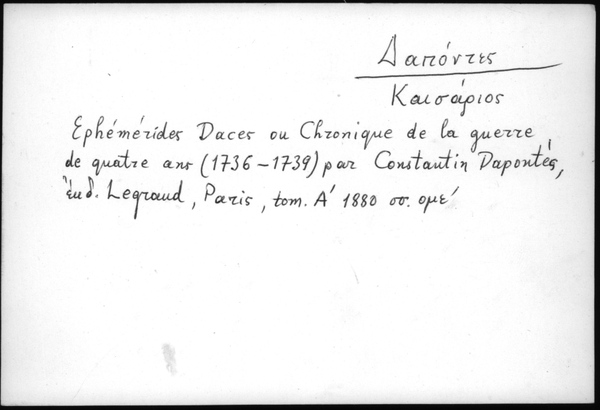 Δαπόντες
Καισάριος
Ephémérides Daces ou Chronique de la guerre
de quatre ans (1736-1739) par Constantin Dapontès,
ἔκδ. Legrand, Paris, tom. Α΄ 1880 σσ. ομέ